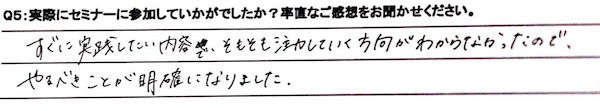 Q5:実際にセミナーに参加していかがでしたか？率直なご感想をお聞かせください。
すぐに実践したい内容で、そもそも注力していく方向がわからなかったので、
やるべきことが明確になりました。